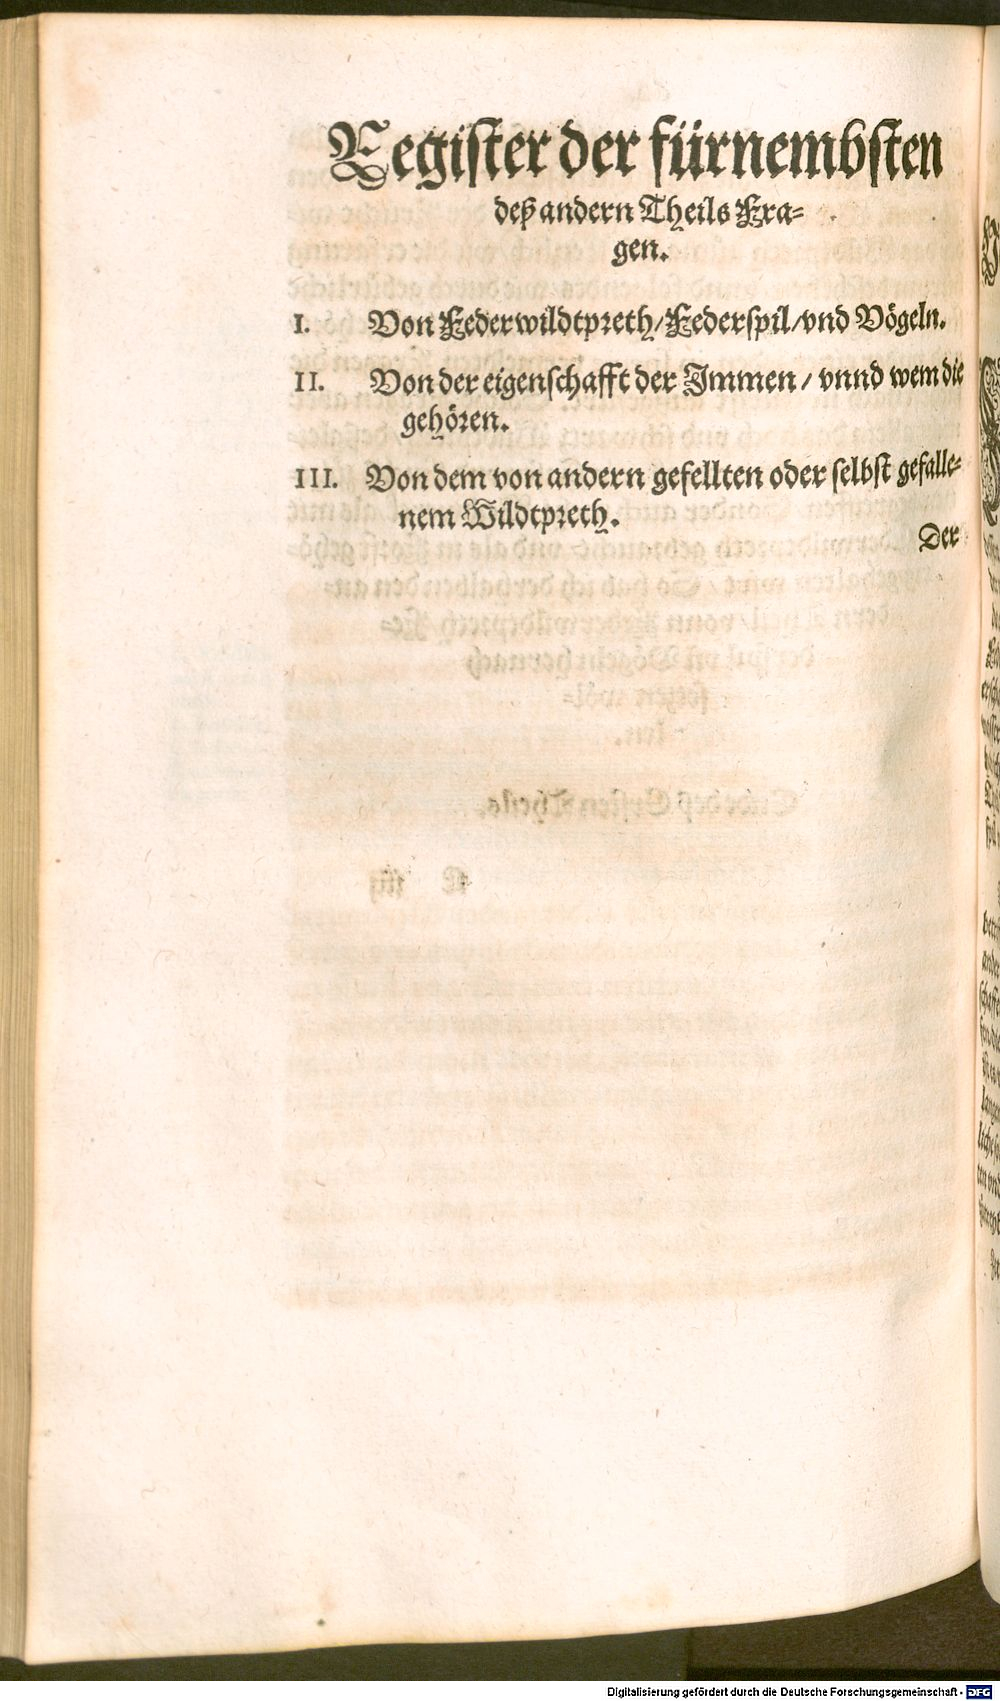 Register der fürnembsten
deß andern Theils Fra-
gen.
I. Von Federwildtpreth/Federspil/vnd Vögeln.
II. Von der eigenschafft der Immen / vnnd wem die
gehören.
III. Von dem von andern gefellten oder selbst gefalle-
nem Wildtpreth.
Der
Digitalisierung gefördert durch die Deutsche Forschungsgemeinschaft - DFG